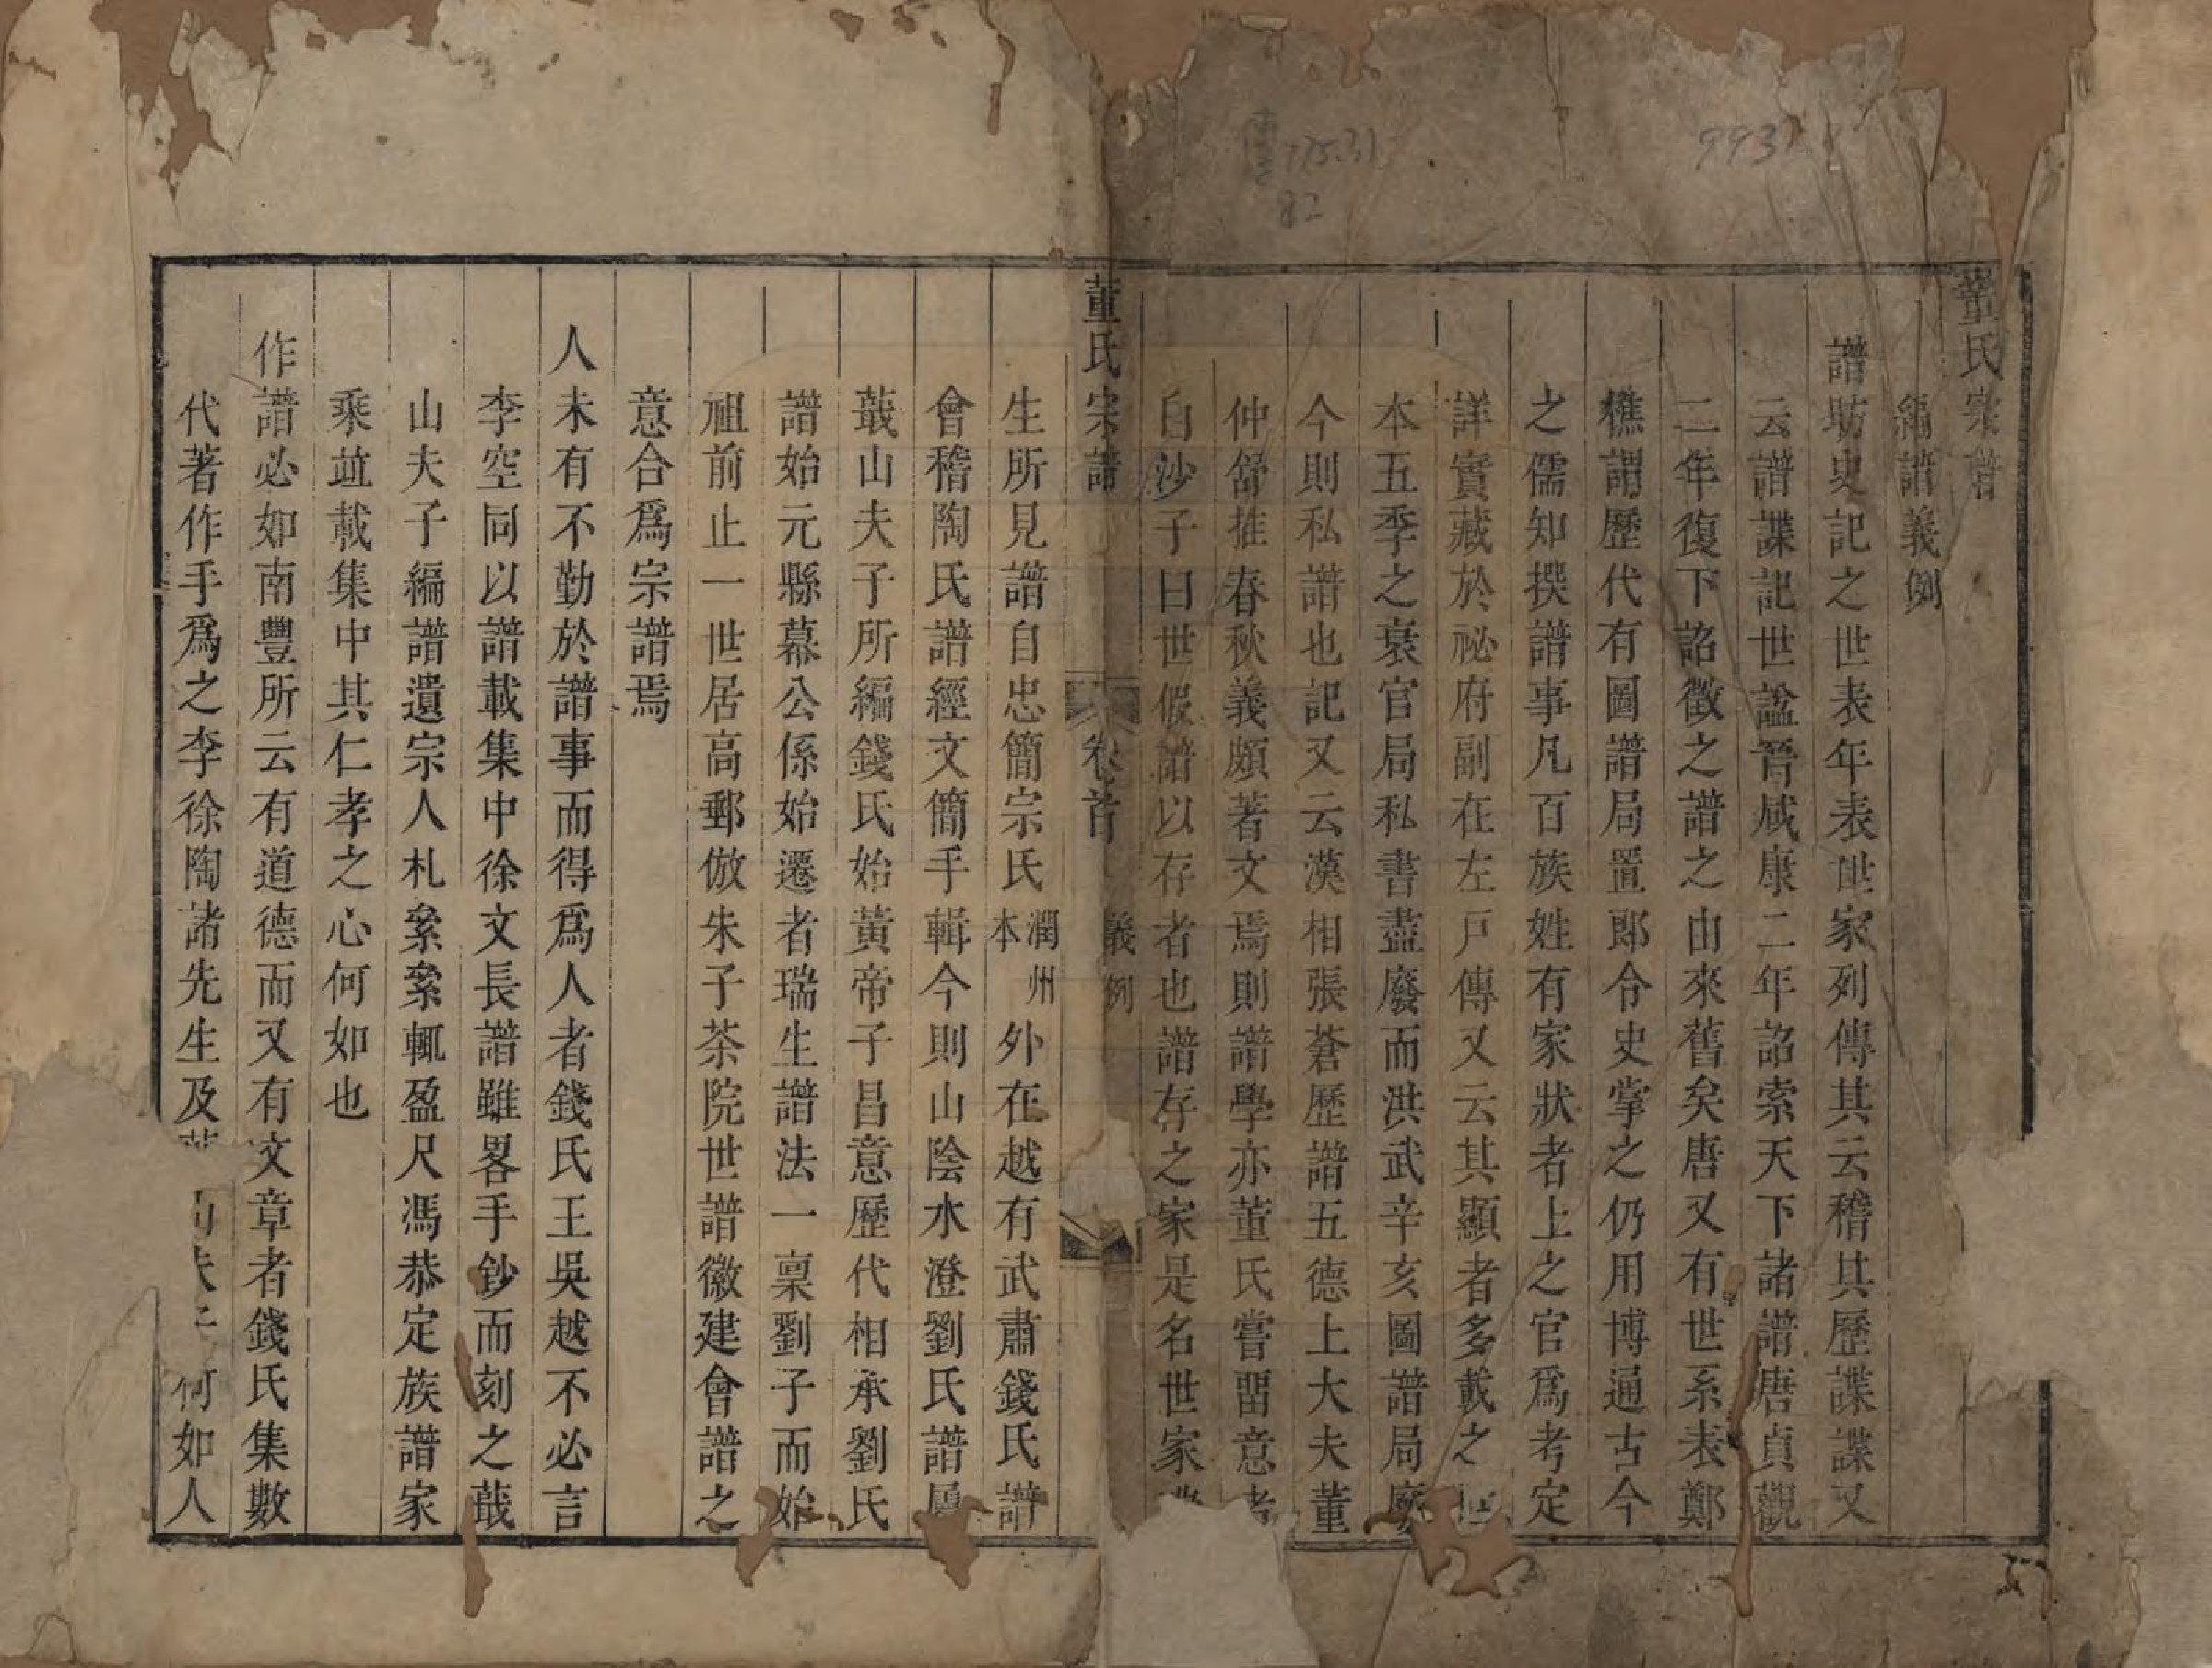 董氏宗譜
編譜義例
譜昉史記之世表年表世家列傳其云稽其歷諜諜又
云譜諜記世謚晉咸康二年詔索天下諸譜唐貞觀
二年復下詔徵之譜之由來舊矣唐又有世系表鄭
樵謂歷代有圖譜局置郎令史掌之仍用博通古今
之儒知撰譜事凡百族姓有家狀者上之官爲考定
詳實藏於祕府副在左戶傳又云其顯者多載之
本五季之衰官局私書盡廢而洪武辛亥圖譜局廢
今則私譜也記又云漢相張蒼歷譜五德上大夫董
仲舒推春秋義頗著文焉則譜學亦董氏嘗留意者
白沙子曰世假譜以存者也譜存之家是名世家
董氏宗譜 卷首 義例
生所見譜自忠簡宗氏潤州本外在越有武肅錢氏譜
會稽陶氏譜經文簡手輯今則山陰水澄劉氏譜屬
蕺山夫子所編錢氏始黃帝子昌意歷代相承劉氏
譜始元縣幕公係始遷者瑞生譜法一稟劉子而始
祖前止一世居高郵倣朱子茶院世譜徽建會譜之
意合爲宗譜焉
人未有不勤於譜事而得爲人者錢氏王吳越不必言
李空同以譜載集中徐文長譜雖畧手鈔而刻之蕺
山夫子編譜遺宗人札絫絫輒盈尺馮恭定族譜家
乘竝載集中其仁孝之心何如也
作譜必如南豐所云有道德而又有文章者錢氏集數
代著作手爲之李徐陶諸先生及蕺山夫子何如人
9932
775.31
82